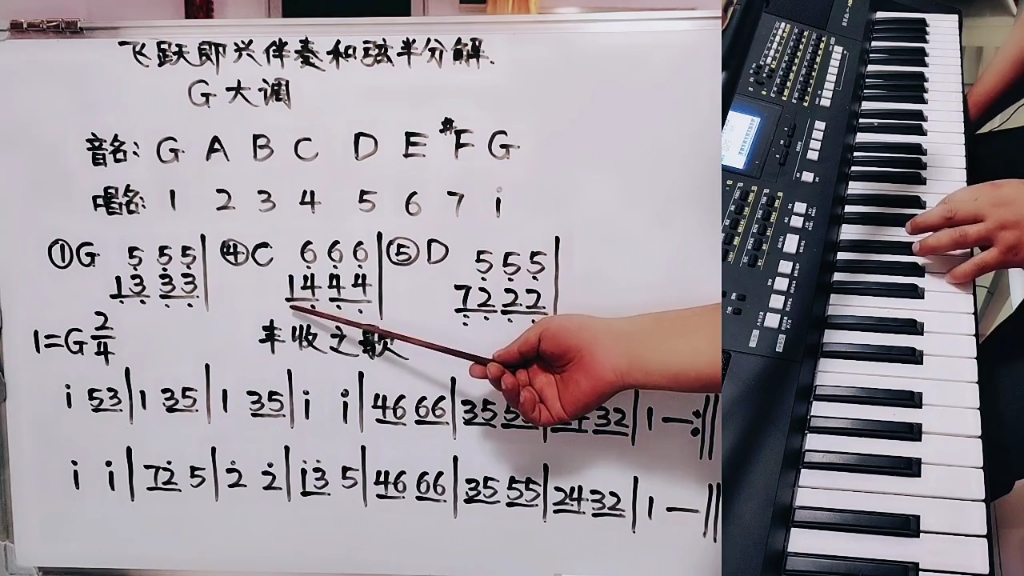 飞跃即兴伴奏和弦半分解.
G大调
音名: G A B C D E #F G
唱名: 1 2 3 4 5 6 7 i
①G 5̣5̣5̣| ④C 6̣6̣6̣| ⑤D 5̣5̣5̣|
13̣ 3̣3̣| 14̣ 4̣4̣| 7̣2̣ 2̣2̣|
1=G 2/4 丰收之歌
i 53|1 35|1 35|i i|46 66|35 55|24 32|1 —:||
i i|72̇ 5|2̇ 2̇|i3̇ 5|46 66|35 55|24 32|1 —||